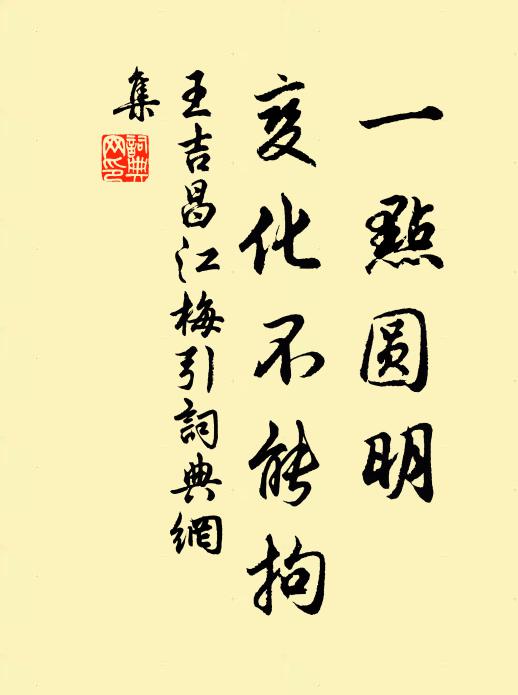 一點圆明
变化不能拘
王吉昌江梅引詞典網
集
詞典網印